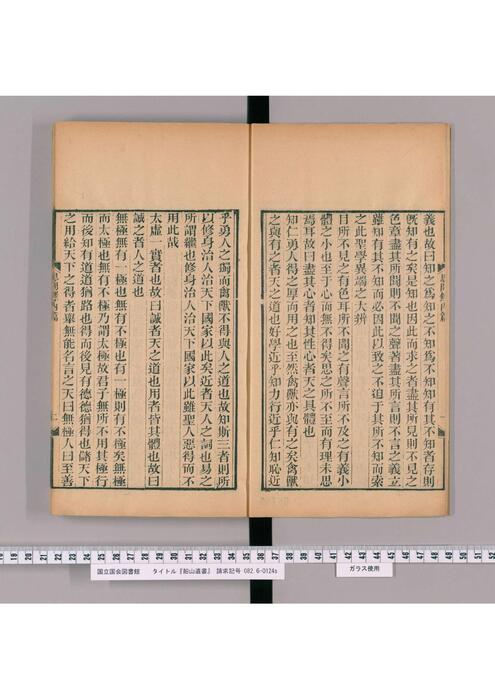 思問錄內篇
義也故曰知之爲知之不知爲不知知有其不知者存則
旣知有之矣是知也因此而求之者盡其所見則不見之
色章盡其所聞則不聞之聲著盡其所言則不言之義立
雖知有其不知而必因此以致之不迫于其所不知而索
之此聖學異端之大辨
目所不見之有色耳所不聞之有聲言所不及之有義小
體之小也至于心而無不得矣思之所不至而有理未思
焉耳故曰盡其心者知其性心者天之具體也
知仁勇人得之厚而用之也至然禽獸亦與有之矣禽獸
之與有之者天之道也好學近乎知力行近乎仁知恥近
乎勇人之獨而禽獸不得與人之道也故知斯三者則所
以修身治人治天下國家以此矣近者天人之詞也易之
所謂繼也修身治人治天下國家以此雖聖人惡得而不
用此哉
太虛一實者也故曰誠者天之道也用者皆其體也故曰
誠之者人之道也
無極無有一極也無有不極也有一極則有不極矣無極
而太極也無有不極乃謂太極故君子無所不用其極行
而後知有道道猶路也得而後見有德德猶得也儲天下
之用給天下之得者舉無能名言之天曰無極人曰至善
思問錄內篇
二
19 18 17 16 15 14 13 12 11 10 9 8 7 6 5 4 3 2 1 0
37 38 39 40 41 42 43 44 45 46 47 48 49 50 51 52
国立国会図書館 タイトル『船山遺書』 請求記号 082.6-O124s
ガラス使用